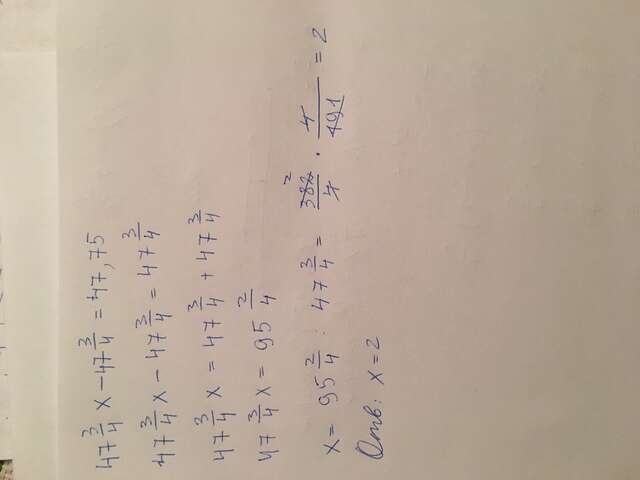 47 3/4 x − 47 3/4 = 47,75
47 3/4 x − 47 3/4 = 47 3/4
47 3/4 x = 47 3/4 + 47 3/4
47 3/4 x = 95 2/4
x = 95 2/4 : 47 3/4 = 382/4 2 · 4/191 = 2
Отв: x = 2